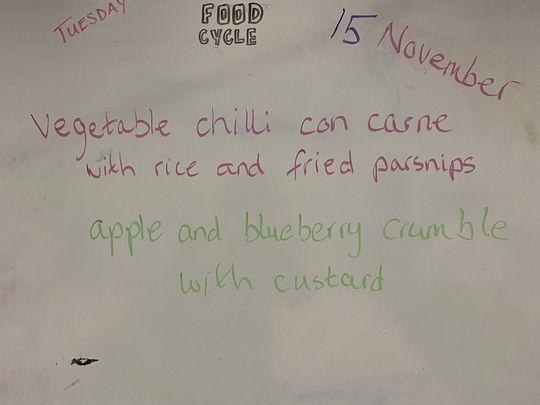 TUESDAY
FOOD
CYCLE
15 November
Vegetable chilli con carne
with rice and fried parsnips
apple and blueberry crumble
with custard